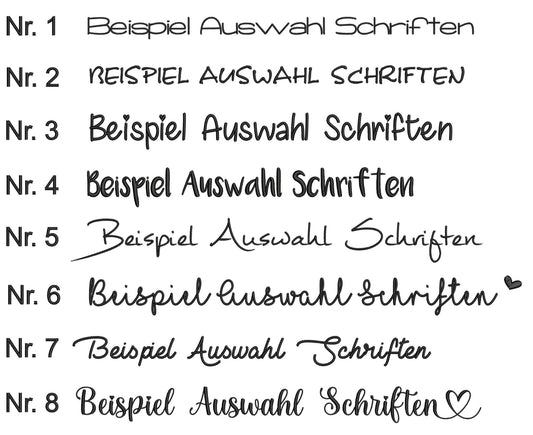 Nr. 1 Beispiel Auswahl Schriften
Nr. 2 BEISPIEL AUSWAHL SCHRIFTEN
Nr. 3 Beispiel Auswahl Schriften
Nr. 4 Beispiel Auswahl Schriften
Nr. 5 Beispiel Auswahl Schriften
Nr. 6 Beispiel Auswahl Schriften
Nr. 7 Beispiel Auswahl Schriften
Nr. 8 Beispiel Auswahl Schriften